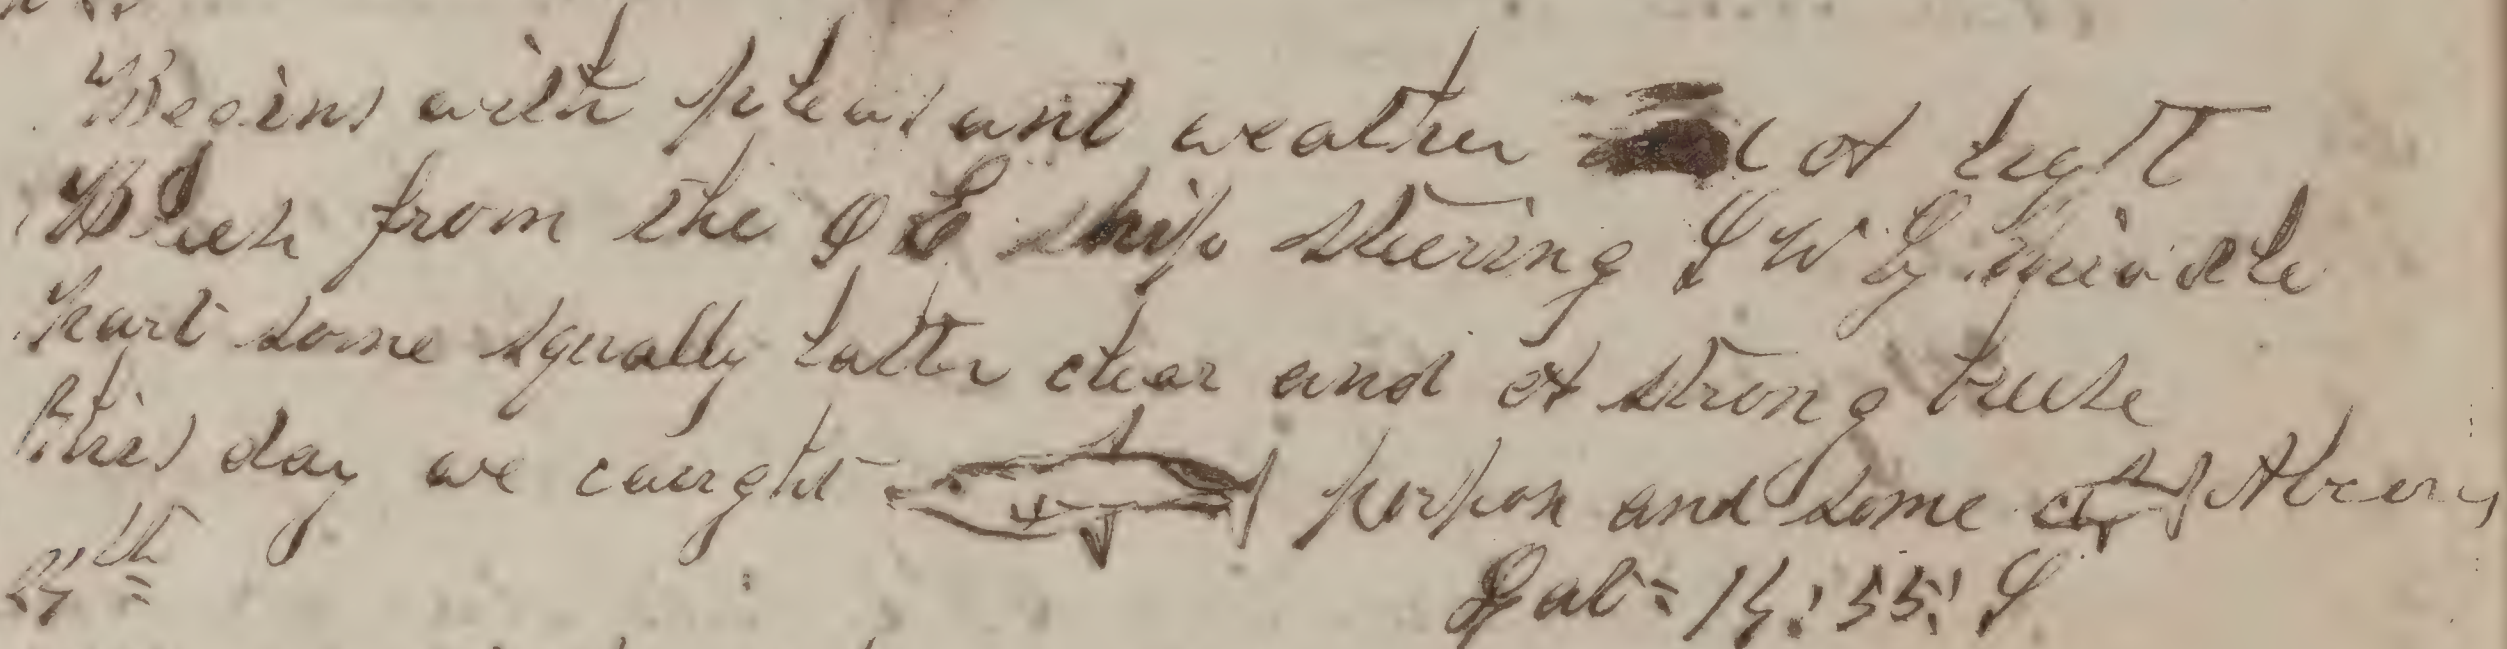 Begins with pleasant weather a light
Breze from the S E ship steering S W by S Middle
part some squally latter clear and a strong breze
this day we caught porpon and some
th
Lat = 15 : 55 : S